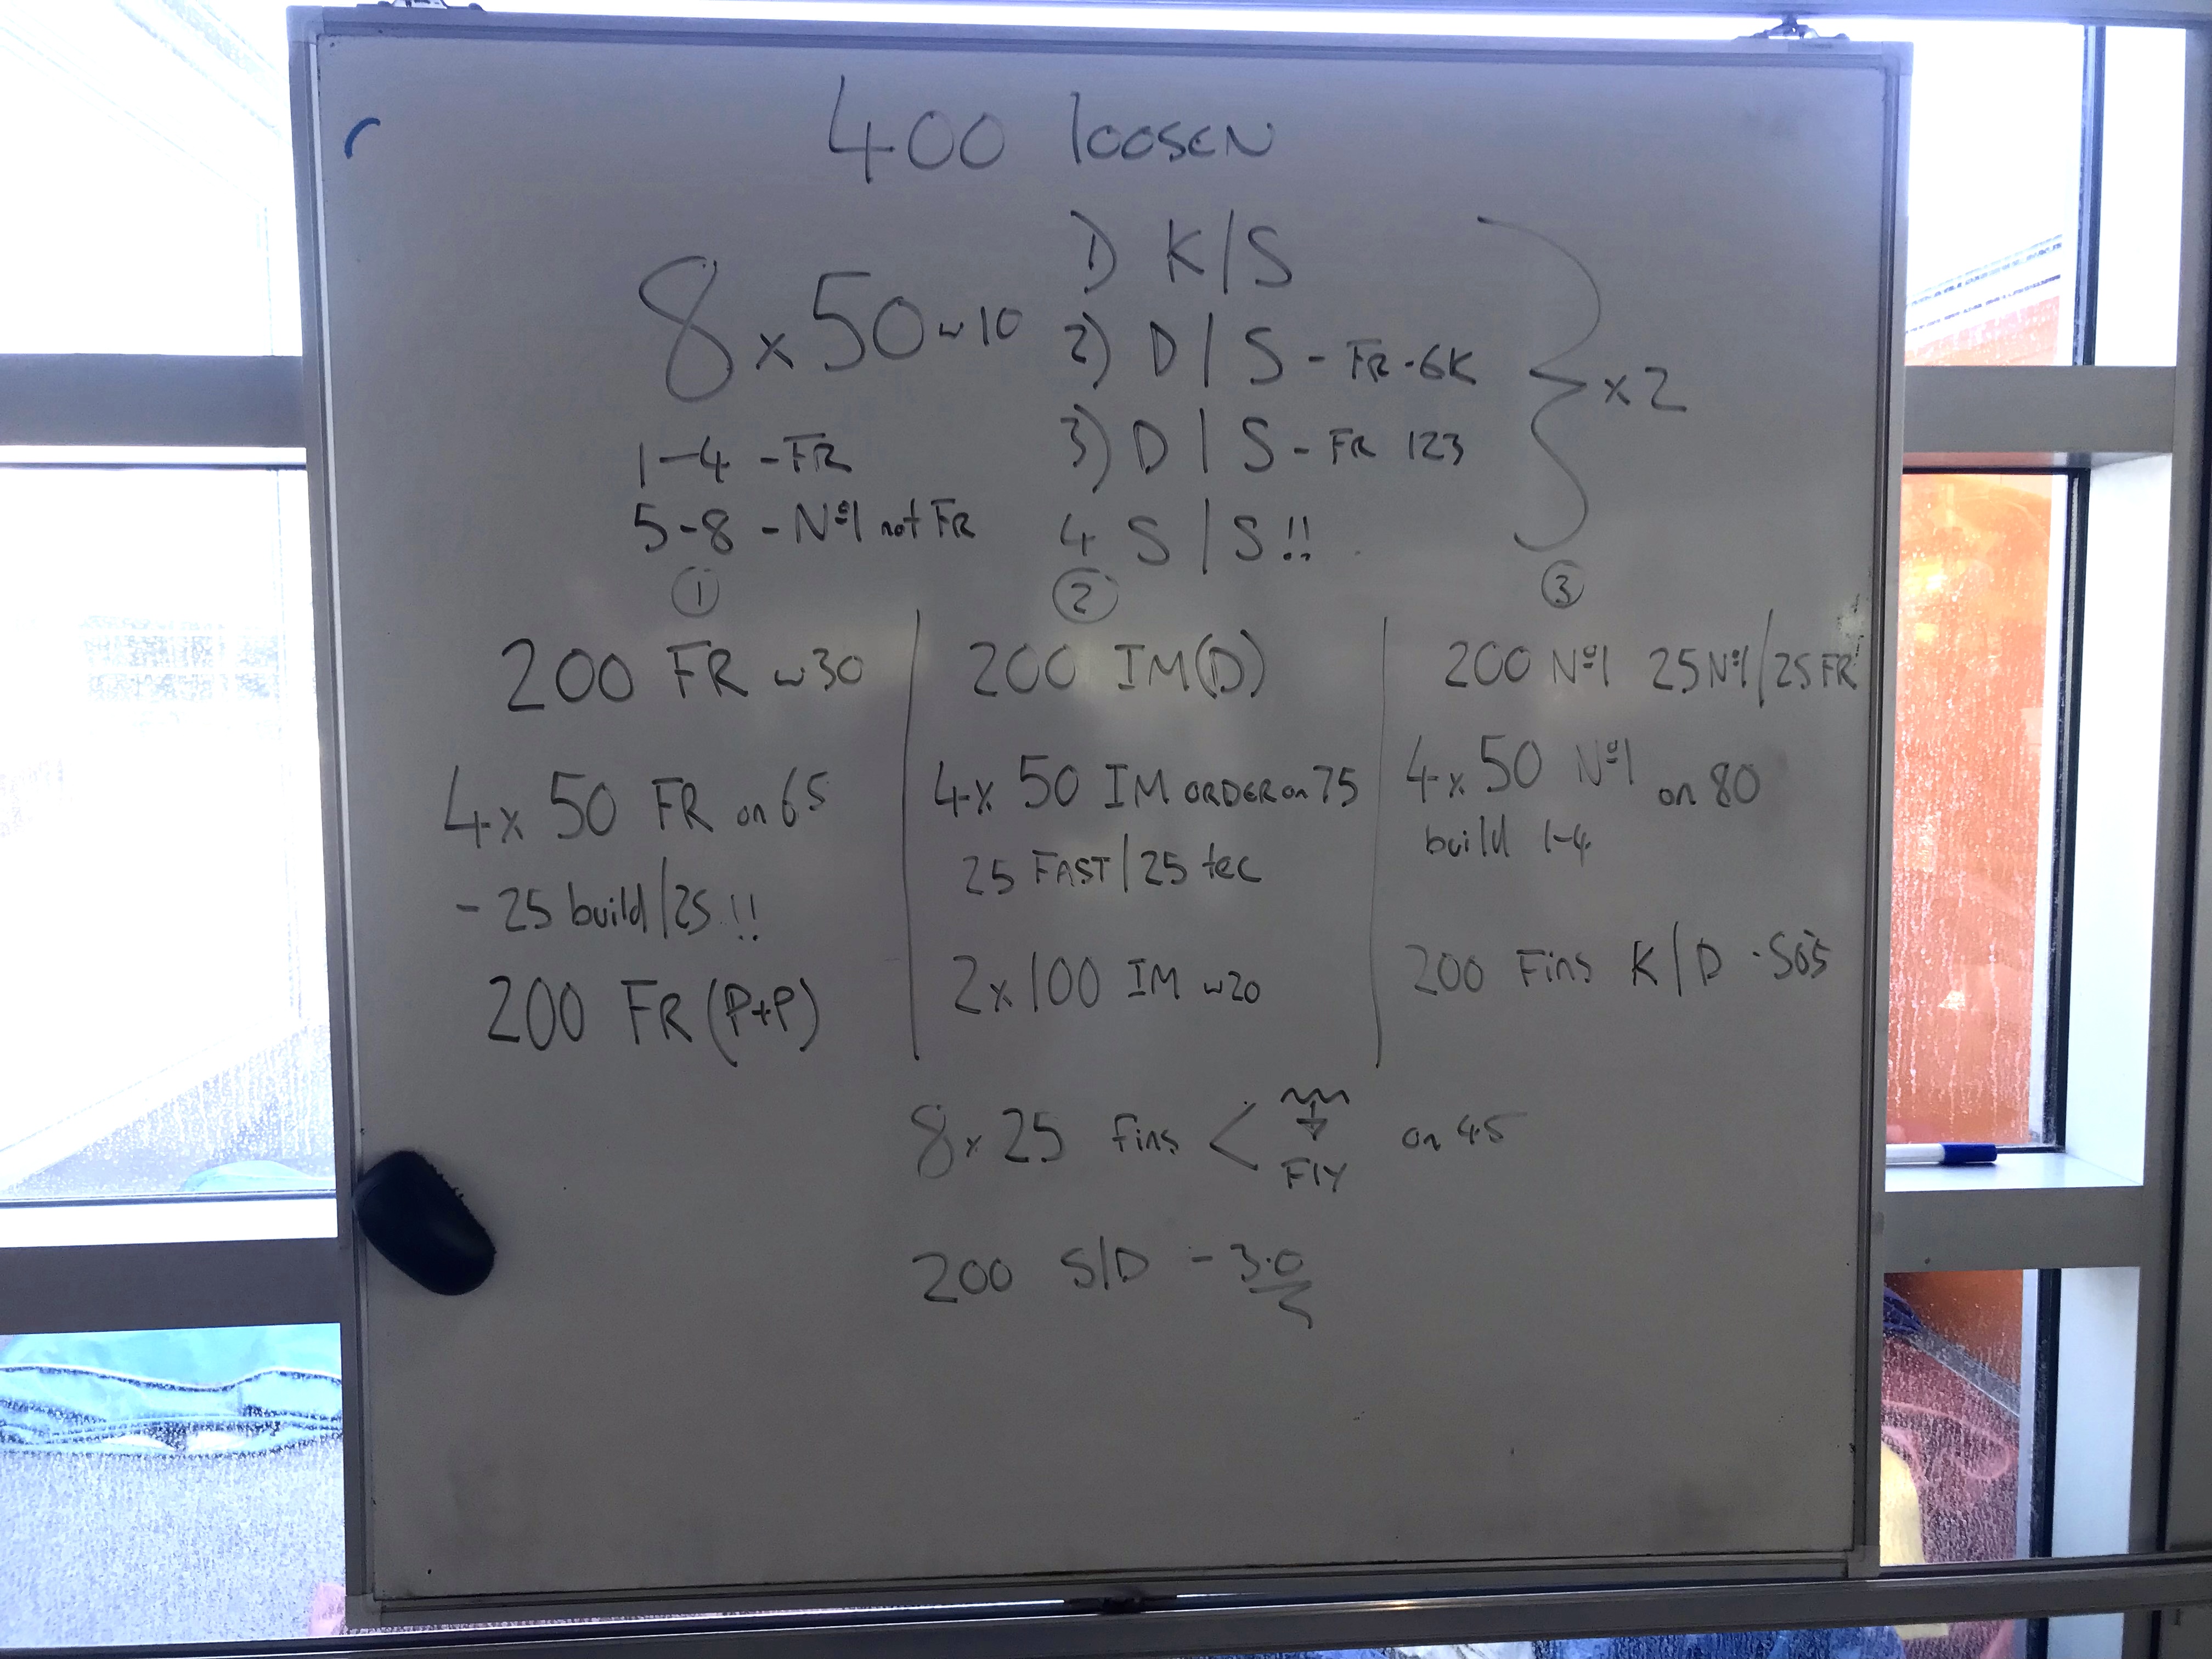 400 loosen
8 x 50 w 10
1-4 - FR
5-8 - Nº1 not FR
1) K/S
2) D/S - FR - 6K
3) D/S - FR 123
4 S/S!!
x2
①
200 FR w30
4 x 50 FR on 65
- 25 build/25!!
200 FR (P+P)
②
200 IM (D)
4 x 50 IM ORDER on 75
25 FAST/25 tec
2 x 100 IM w20
③
200 Nº1 25 Nº1/25 FR
4 x 50 Nº1 on 80
build 1-4
200 Fins K/D
8 x 25 fins < FLY on 45
200 S/D - 3.0